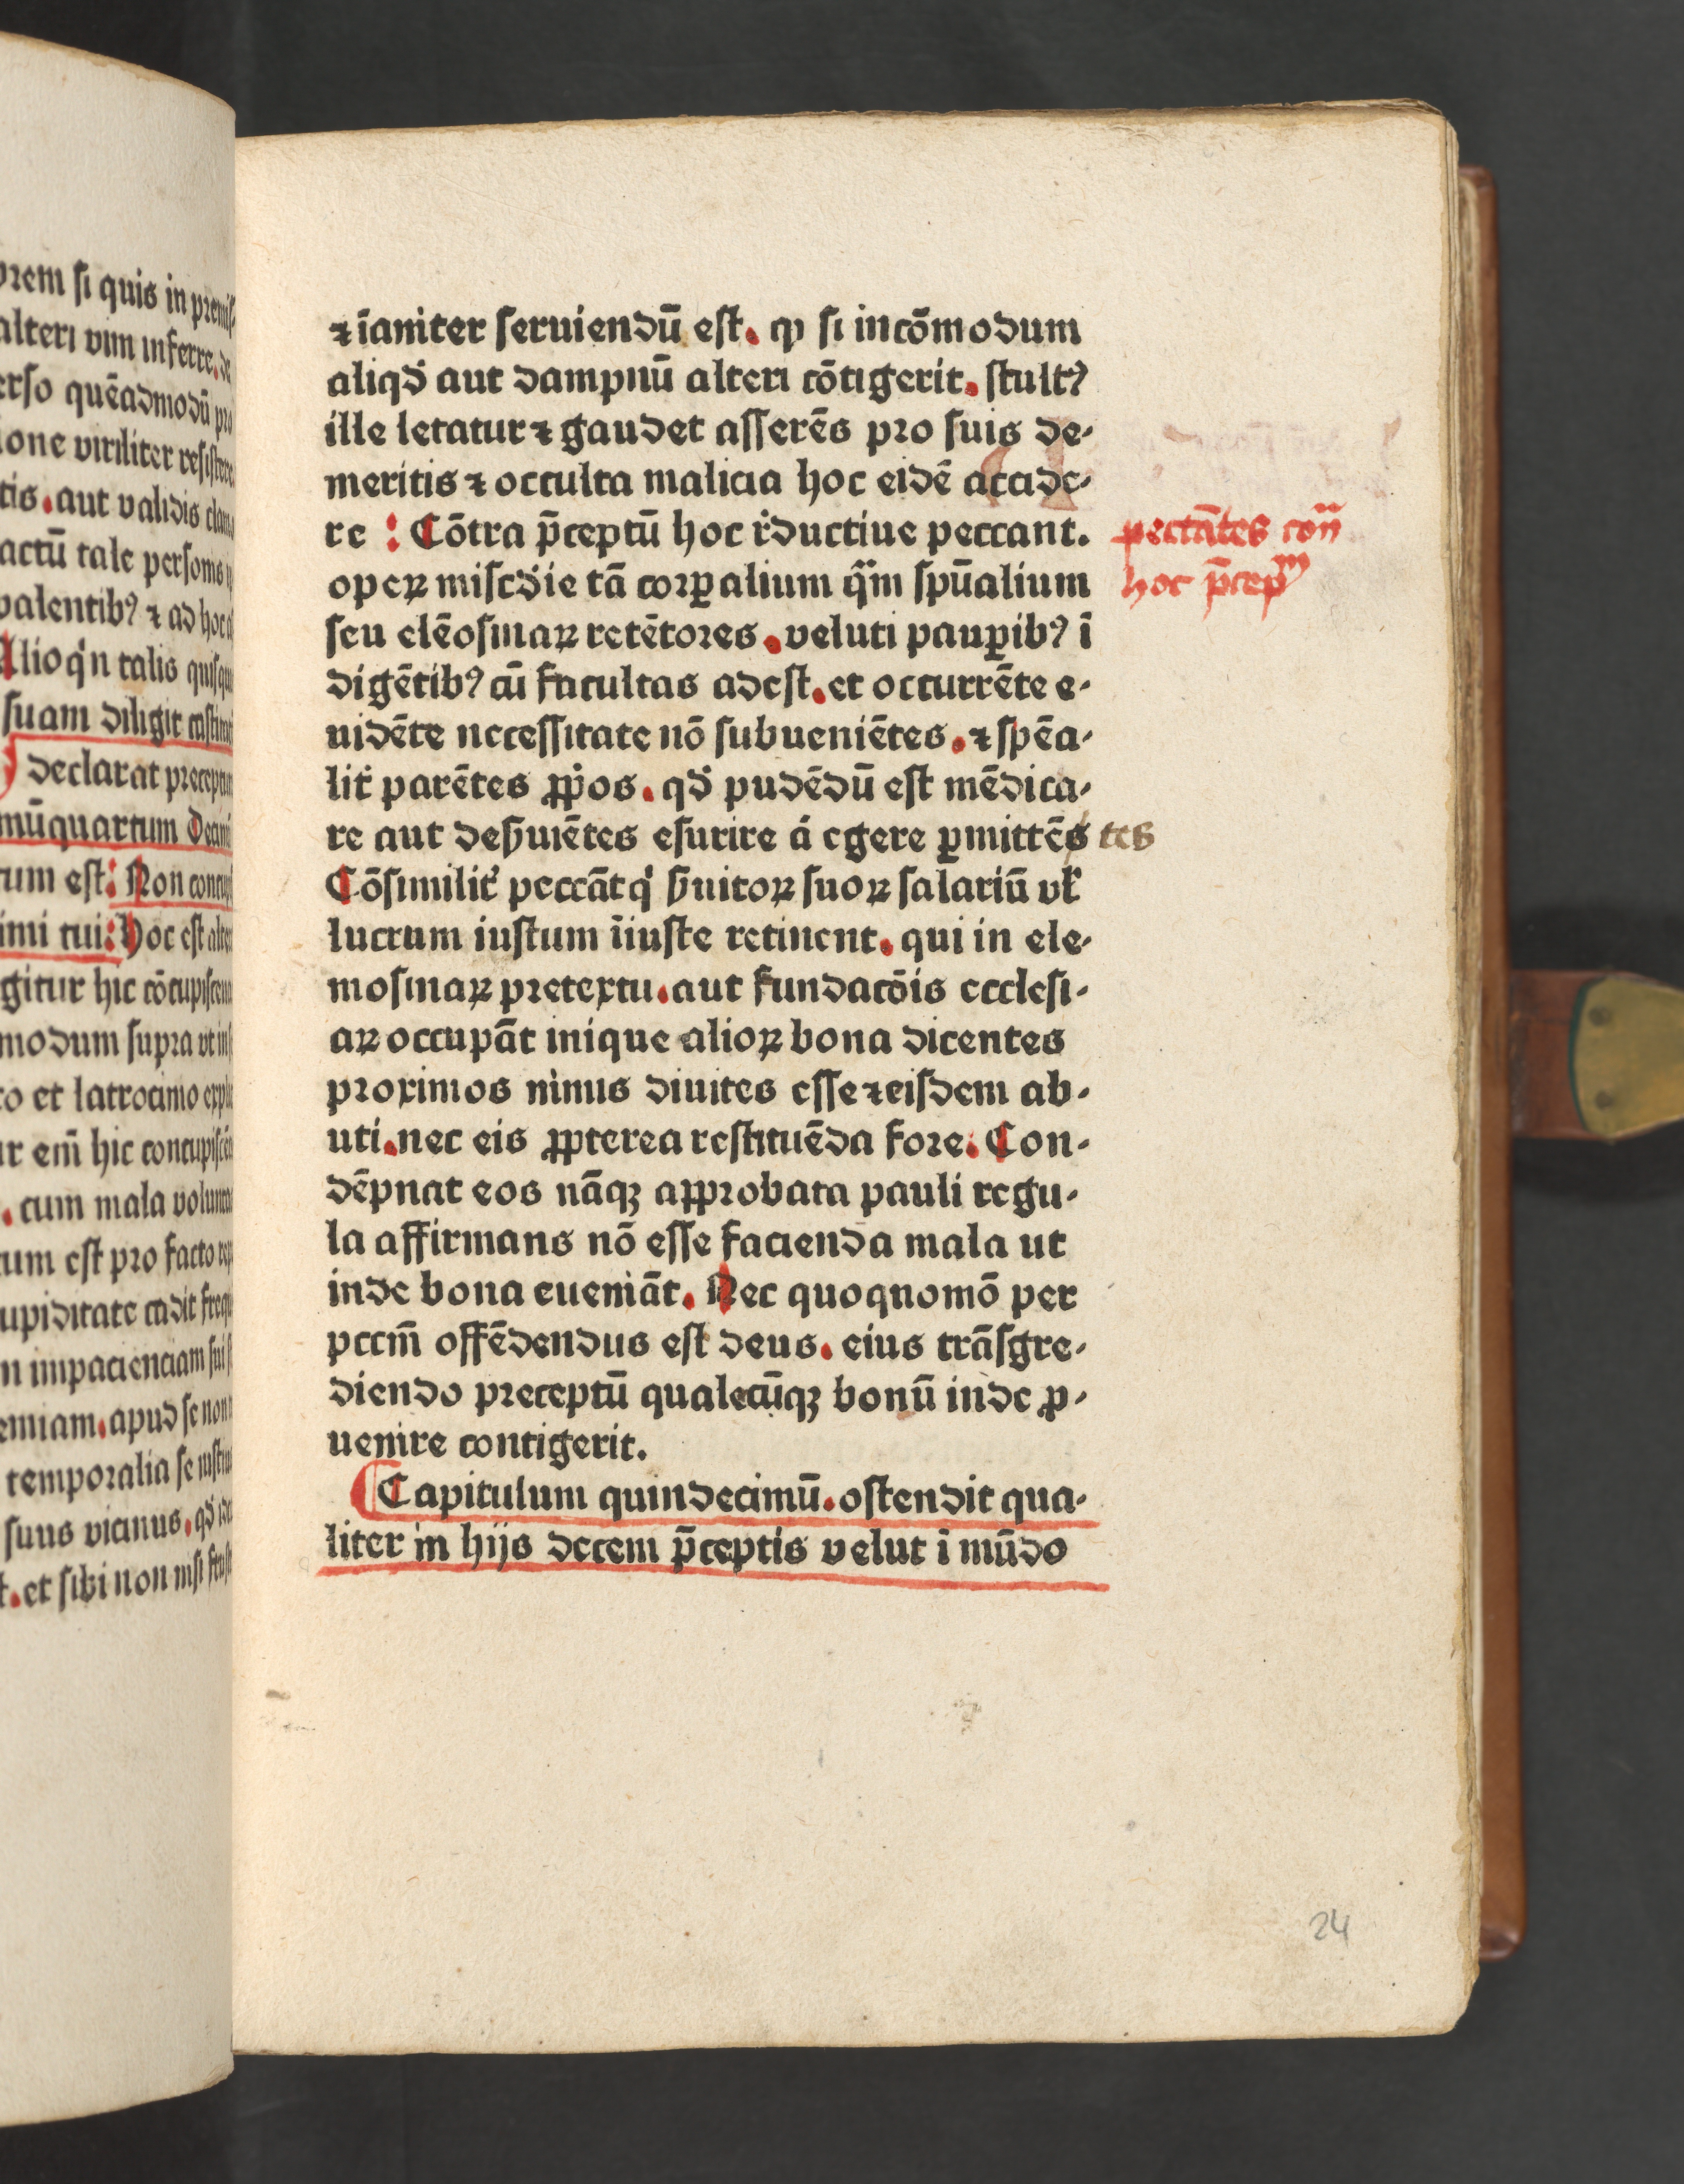 orem si quis in premis-
alteri vim inferre. de
erso quēadmodū pro
ione viriliter resistere
tis. aut validis clamo
actū tale personis
valentibꝰ ⁊ ad hoc
Alioqͥn talis quisque
suam diligit castitat
declarat preceptum
mūquartum Decimi
tum est: Non concupi
imi tui: Hoc est alter
gitur hic cōcupiscen
modum supra ut in
to et latrocinio expli
ur em̄ hic concupiscē
. cum mala volunta
tum est pro facto rep
upiditate cadit frequ
m impacienciam sui
emiam. apud se non
temporalia se
suus vicinus. qđ
t. et sibi non nisi
⁊ īaniter seruiendū est. ꝙ si incōmodum
aliqđ aut dampnū alteri cōtigerit. stultꝰ
ille letatur ⁊ gaudet asserēs pro suis de-
meritis ⁊ occulta malicia hoc eidē accide-
re : Cōtra p̄ceptū hoc rͥductiue peccant.
opeꝝ misc̄die tā corꝑalium qͣ̄m spūalium
seu elēosinaꝝ retētores. veluti pauꝑibꝰ ī
digētibꝰ cū facultas adest. et occurrēte e-
uidēte necessitate nō subueniētes. ⁊ spēa-
lit̉ parētes ꝓp̉os. qđ pudēdū est mēdica-
re aut desͥuiētes esurire á egere ꝑmittēs tes
Cōsimilit̉ peccāt qͥ sͥuitoꝝ suoꝝ salariū vł
lucrum iustum īiuste retinent. qui in ele-
mosinaꝝ pretextu. aut fundacōis ecclesi-
aꝝ occupāt inique alioꝝ bona dicentes
proximos nimis diuites esse ⁊ eisdem ab-
uti. nec eis ꝓpterea restituēda fore. Con-
dēpnat eos nāqꝫ approbata pauli regu-
la affirmans nō esse facienda mala ut
inde bona eueniāt. Nec quoqnomō per
pccm̄ offēdendus est deus. eius trāsgre-
diendo preceptū qualecūqꝫ bonū inde ꝓ-
uenire contigerit.
Capitulum quindecimū. ostendit qua-
liter in hijs decem p̄ceptis velut ī mūdo
peccātes con̄
hoc p̄cepᵐ
24